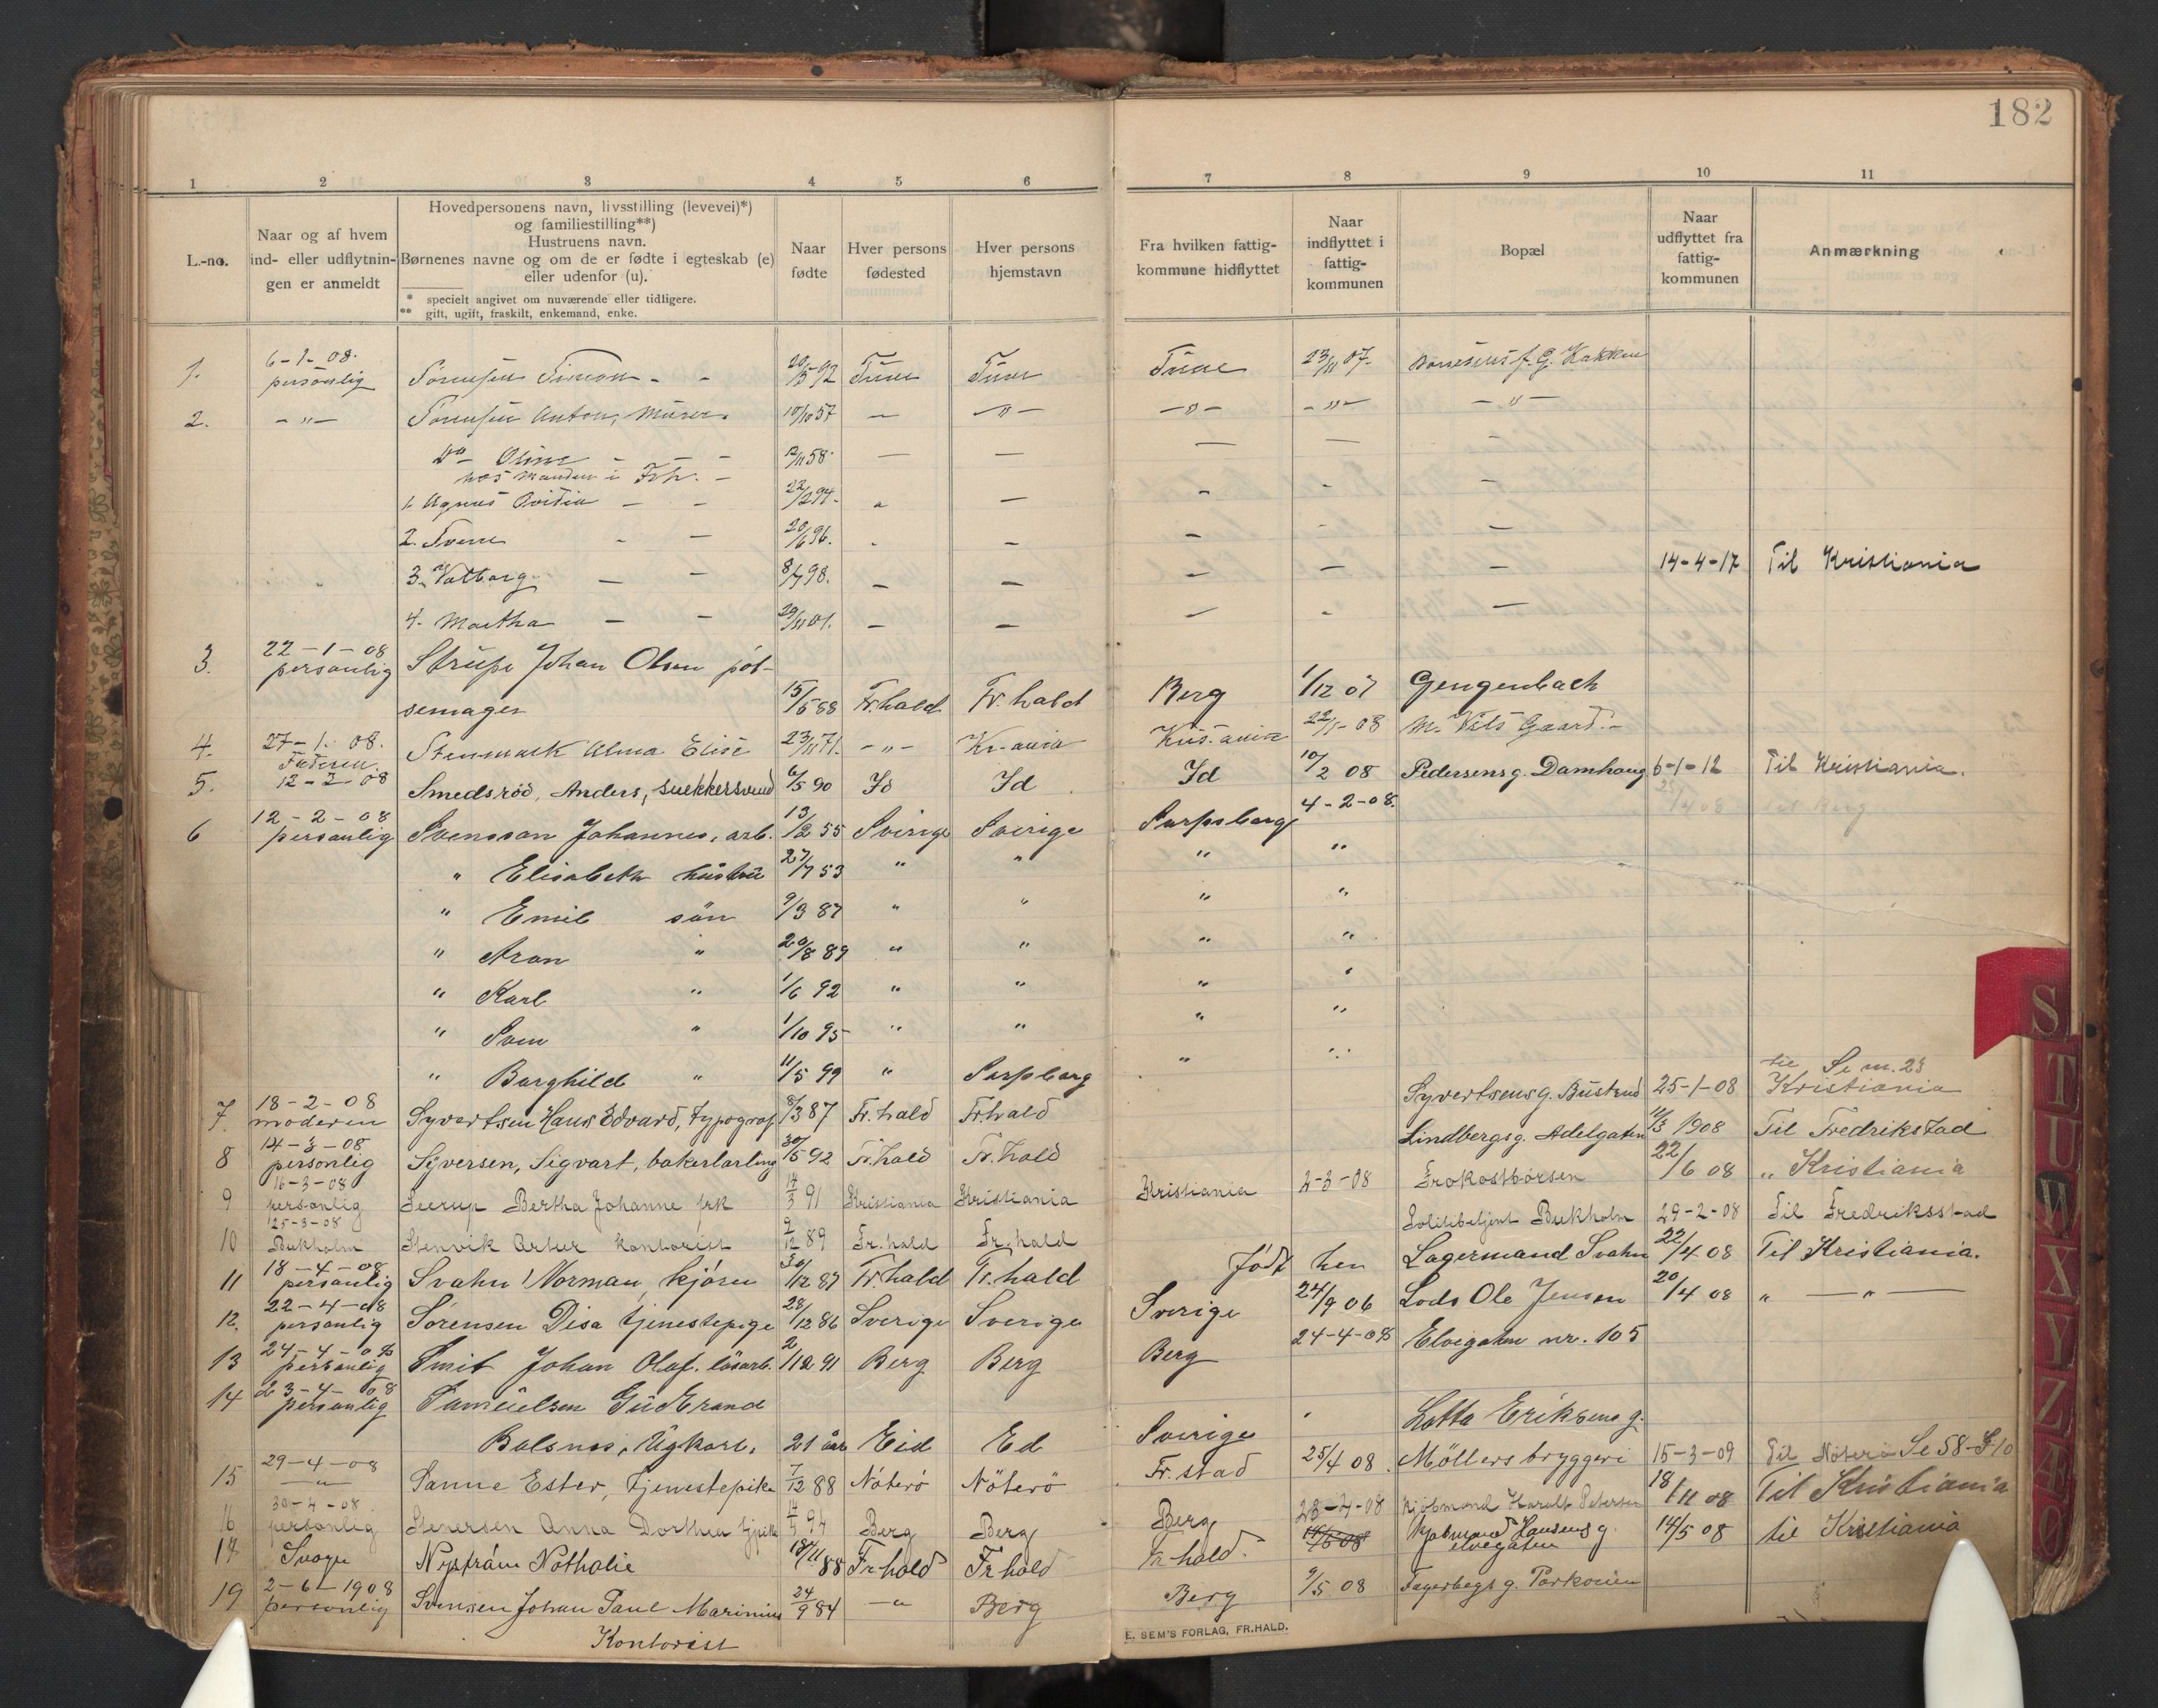 182
1 2 3 4 5 6 7 8 9 10 11
L.-no.
Naar og af hvem
ind- eller udflytnin-
gen er anmeldt
Hovedpersonens navn, livsstilling (levevei)*)
og familiestilling**)
Hustruens navn.
Børnenes navne og om de er fødte i egteskab (e)
eller udenfor (u).
* specielt angivet om nuværende eller tidligere.
** gift, ugift, fraskilt, enkemand, enke.
Naar
fødte
Hver persons
fødested
Hver persons
hjemstavn
Fra hvilken fattig-
kommune hidflyttet
Naar
indflyttet i
fattig-
kommunen
Bopæl
Naar
udflyttet fra
fattig-
kommunen
Anmærkning
6-1-08.
1. personlig Sörensen Simon - - 20/5 92 Tune Tune Tune 23/11 07.
2. - " - Sörensen Anton, Murer. 10/10 57 — - " - - " - - " - - " -
Do Oline - - - 12/11 58 — —
hos manden i Frh. -
1. Agnes Ovidia — - 22/2 94. —
2. Svene - — 20/6 96. - —
3. Valborg — - 8/7 98. — — — — — 14-4-17 Til Kristiania
4. Martha — - 29/11 01. — —
22-1-08
3. personlig Strupe Johan Olsen pöl-
semager 15/5 88 Fr.hald Fr.hald Berg 1/12 07 Gengenbach
27-1-08.
4. Stenmark Alma Elise 23/11 71. - " - Kr.ania Kris.ania 22/1-08 M. Vets Gaard.-
12-2-08
5. Smedsröd, Anders, snekkersvend 6/5 90 Id Id Id 10/2 08 Pedersens g. Damhaug 6-1-12 Til Kristiania.
25/4 08 til Berg
12-2-08
6 personlig Svensson Johannes, arb. 13/12 55 Sverige Sverige Sarpsborg 4-2-08.
" Elisabeth hustru 27/7 53 " " " "
" Emil sön 9/3 87 " " " "
" Aron " 20/8 89 " " " "
" Karl " 1/6 92 " " " "
" Sven " 1/10 95 " " " "
" Borghild " 11/5 99 " Sarpsborg " "
til Se m. 23
18-2-08
7. moderen Syvertsen Hans Edvard, typograf 8/3 87 Fr.hald Fr.hald Syvertsens g. Büstrud 25-1-08 Kristiania
14-3-08
8 personlig Syversen, Sigvart, bakerlærling 30/5 92 Fr.hald Fr.hald Lindbergs g. Adelgaten 11/3 1908 Til Fredrikstad
16-3-08
9 personlig Seerup Bertha Johanne frk 14/3 91 Kristiania Kristiania Kristiania 2-3-08 Frokostbörsen 22/6 08 " Kristiania
25-3-08
10 Bukholm Stenvik Artur kontorist 9/12 89 Fr.hald Fr.hald Politibetjent Bukholm 29-2-08 Til Fredriksstad
18-4-08
11 personlig Svahn Norman, kjören 30/12 87 Fr.hald Fr.hald Födt her Lagermand Svahn 22/4 08 Til Kristiania.
22-4-08
12. personlig Sörensen Disa tjenestepige 28/12 86 Sverige Sverige Sverige 24/9 06 Lods Ole Jensen 20/4 08 " — " —
24-4-08
13 personlig Smit Johan Olaf. lösarb. 2/12 91 Berg Berg Berg 24-4-08 Elvegaten nr. 105
23-4-08
14 personlig Samuelsen Gudbrand
Balsnes, Ugkarl. 21 aar Eid Ed Sverige Lotta Eriksens g.
29-4-08
15 — " — Sanne Ester, tjenestepike 7/12 88 Nöterö Nöterö Fr.stad 25/4 08 Möllers bryggeri 15-3-09 Til Nöterö Se 58-S 10
30-4-08.
16 personlig Stenersen Anna Dorthea tjpike 14/4 94 Berg Berg Berg 28-4-08 Kjöbmand Haralt Petersen 18/11 08 Til Kristiania
17 Svoger Nyström Nathalie 18/11 88 Fr.hald Fr.hald Fr.hald. Kjöbmand Hansens g. 14/5 08 til Kristiania
elvegaten
2-6-1908
19 personlig Svensen Johan Paul Marinius 24/9 84 — " Berg Berg 9/5 08
Kontorist
E. SEM'S FORLAG, FR.HALD.
S
T
U
W
X
Y
Z
Æ
Ø